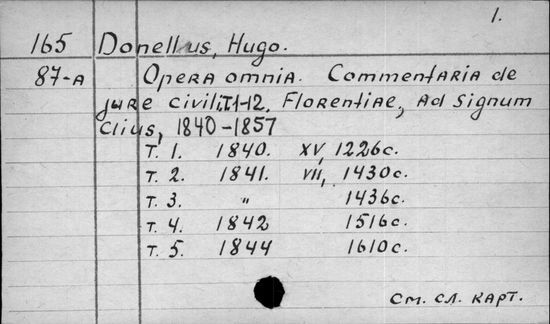 1.
165 Donellus, Hugo.
87-А Opera omnia. Commentaria de
jure civili. T.1-12. Florentiae, Ad signum
Clius, 1840-1857
Т. 1. 1840. XV, 1226с.
Т. 2. 1841. VII, 1430с.
Т. 3. " 1436с.
Т. 4. 1842 1516с.
Т. 5. 1844 1610с.
См. сл. карт.